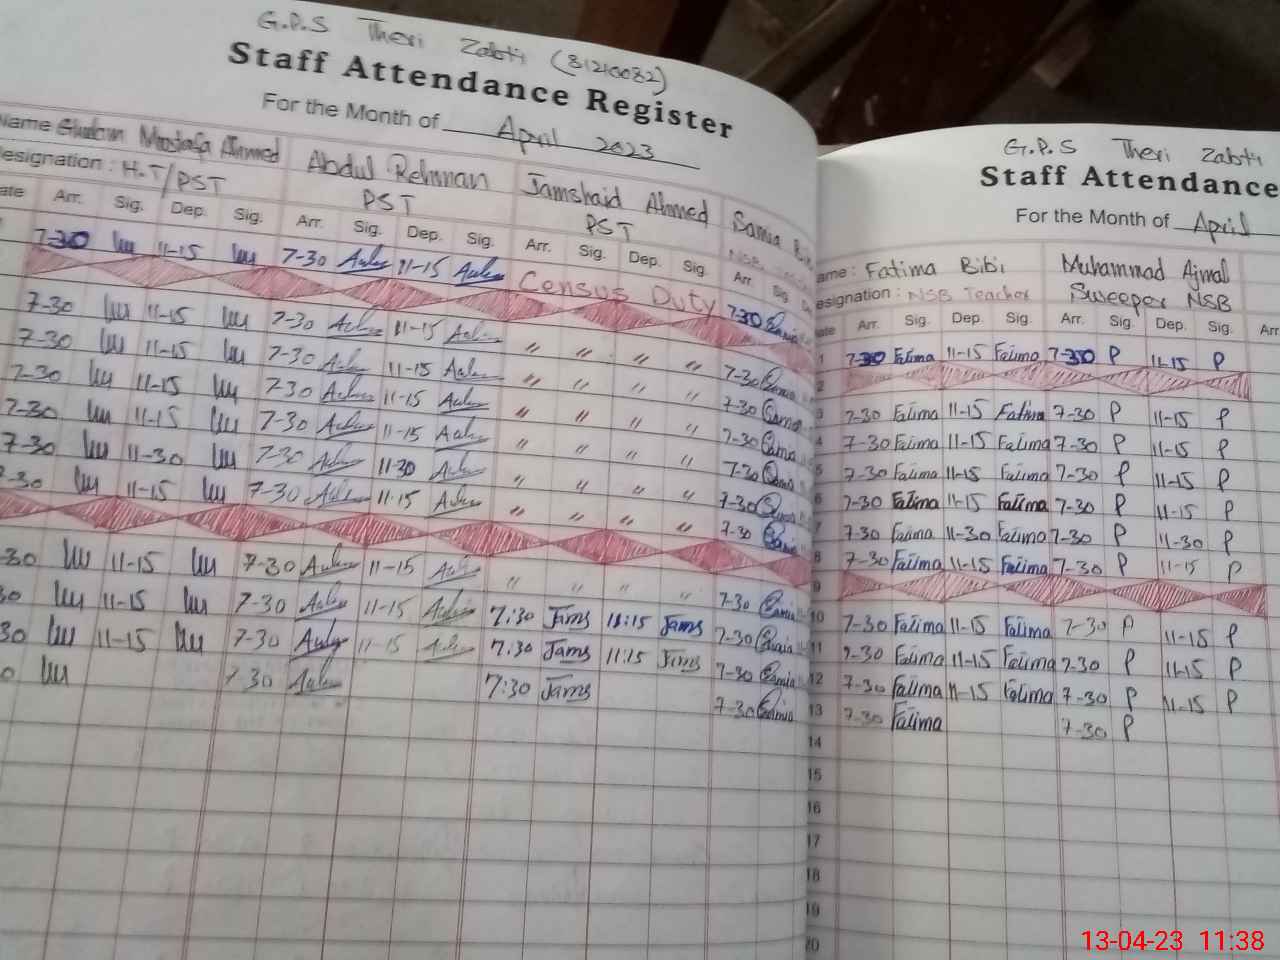 G.P.S Theri Zabti (31210082)
Staff Attendance Register
For the Month of April 2023
Name Ghulam Mustafa Ahmed Abdul Rehman Jamshaid Ahmed Samia Bibi
Designation: H.T/PST PST PST NSB
Arr. Sig. Dep. Sig. Arr. Sig. Dep. Sig. Arr. Sig. Dep. Sig. Arr Sig
7-30 11-15 7-30 11-15 Census Duty 7-30 Samia
7-30 11-15 7-30 11-15 " " " " 7-30 Samia
7-30 11-15 7-30 11-15 " " " " 7-30 Samia
7-30 11-15 7-30 11-15 " " " " 7-30 Samia
7-30 11-15 7-30 11-15 " " " " 7-30 Samia
7-30 11-30 7-30 11-30 " " " " 7-30 Samia
7-30 11-15 7-30 11-15 " " " " 7-30 Samia
-30 11-15 7-30 11-15 " " " " 7-30 Samia
30 11-15 7-30 11-15 7:30 Jams 11:15 Jams 7-30 Samia
30 11-15 7-30 11-15 7:30 Jams 11:15 Jams 7-30 Samia
0 7-30 7:30 Jams 7-30 Samia
G.P.S Theri Zabti
Staff Attendance
For the Month of April
ame: Fatima Bibi Muhammad Ajmal
esignation: NSB Teacher Sweeper NSB
ate Arr. Sig. Dep. Sig. Arr. Sig. Dep. Sig. Arr
1 7-30 Fatima 11-15 Fatima 7-30 P 11-15 P
2
3 7-30 Fatima 11-15 Fatima 7-30 P 11-15 P
4 7-30 Fatima 11-15 Fatima 7-30 P 11-15 P
5 7-30 Fatima 11-15 Fatima 7-30 P 11-15 P
6 7-30 Fatima 11-15 Fatima 7-30 P 11-15 P
7 7-30 Fatima 11-30 Fatima 7-30 P 11-30 P
8 7-30 Fatima 11-15 Fatima 7-30 P 11-15 P
9
10 7-30 Fatima 11-15 Fatima 7-30 P 11-15 P
11 7-30 Fatima 11-15 Fatima 7-30 P 11-15 P
12 7-30 Fatima 11-15 Fatima 7-30 P 11-15 P
13 7-30 Fatima 7-30 P
14
15
16
17
18
19
20
13-04-23 11:38